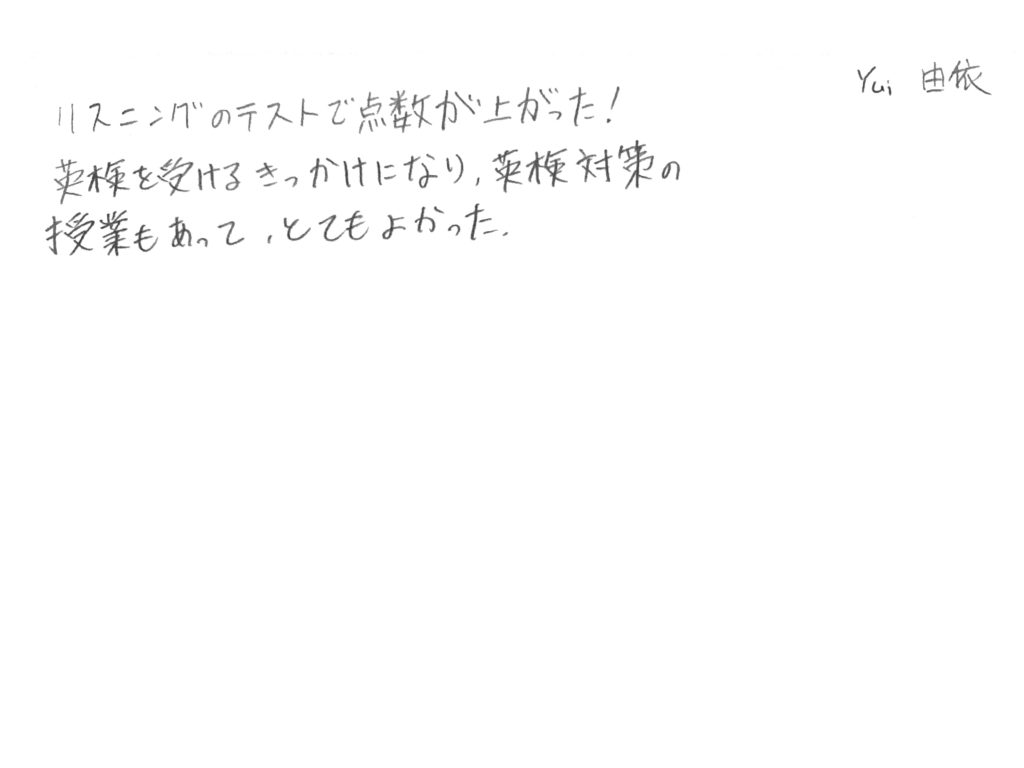 Yui 由依
リスニングのテストで点数が上がった!
英検を受けるきっかけになり,英検対策の
授業もあって,とてもよかった.